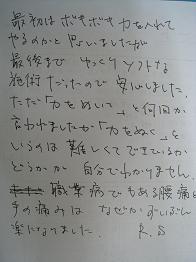 最初はボキボキ力を入れて
やるのかと思いましたが
最後までゆっくりソフトな
施術だったので安心しました。
ただ「力をぬいて」と何回か
言われましたが「力をぬく」と
いうのは難しくてできているか
どうか 自分でわかりません。
職業病でもある腰痛と
手の痛みは なぜかずいぶん
楽になりました。 K.S